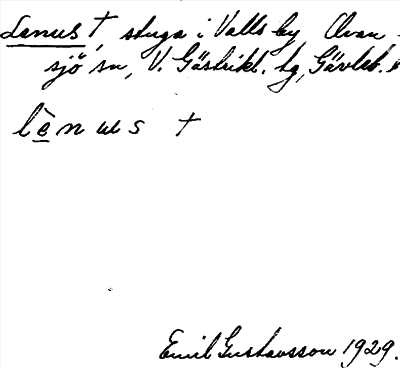 Lenus †, stuga i Valls by, Ovan-
sjö sn, V. Gästrikl. tg, Gävleb. l
lènus †
Emil Gustavsson 1929.